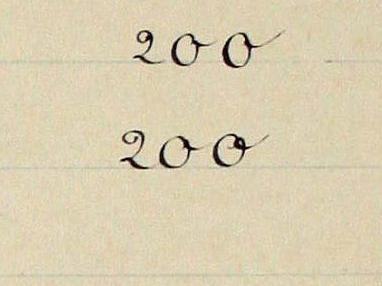 200
200